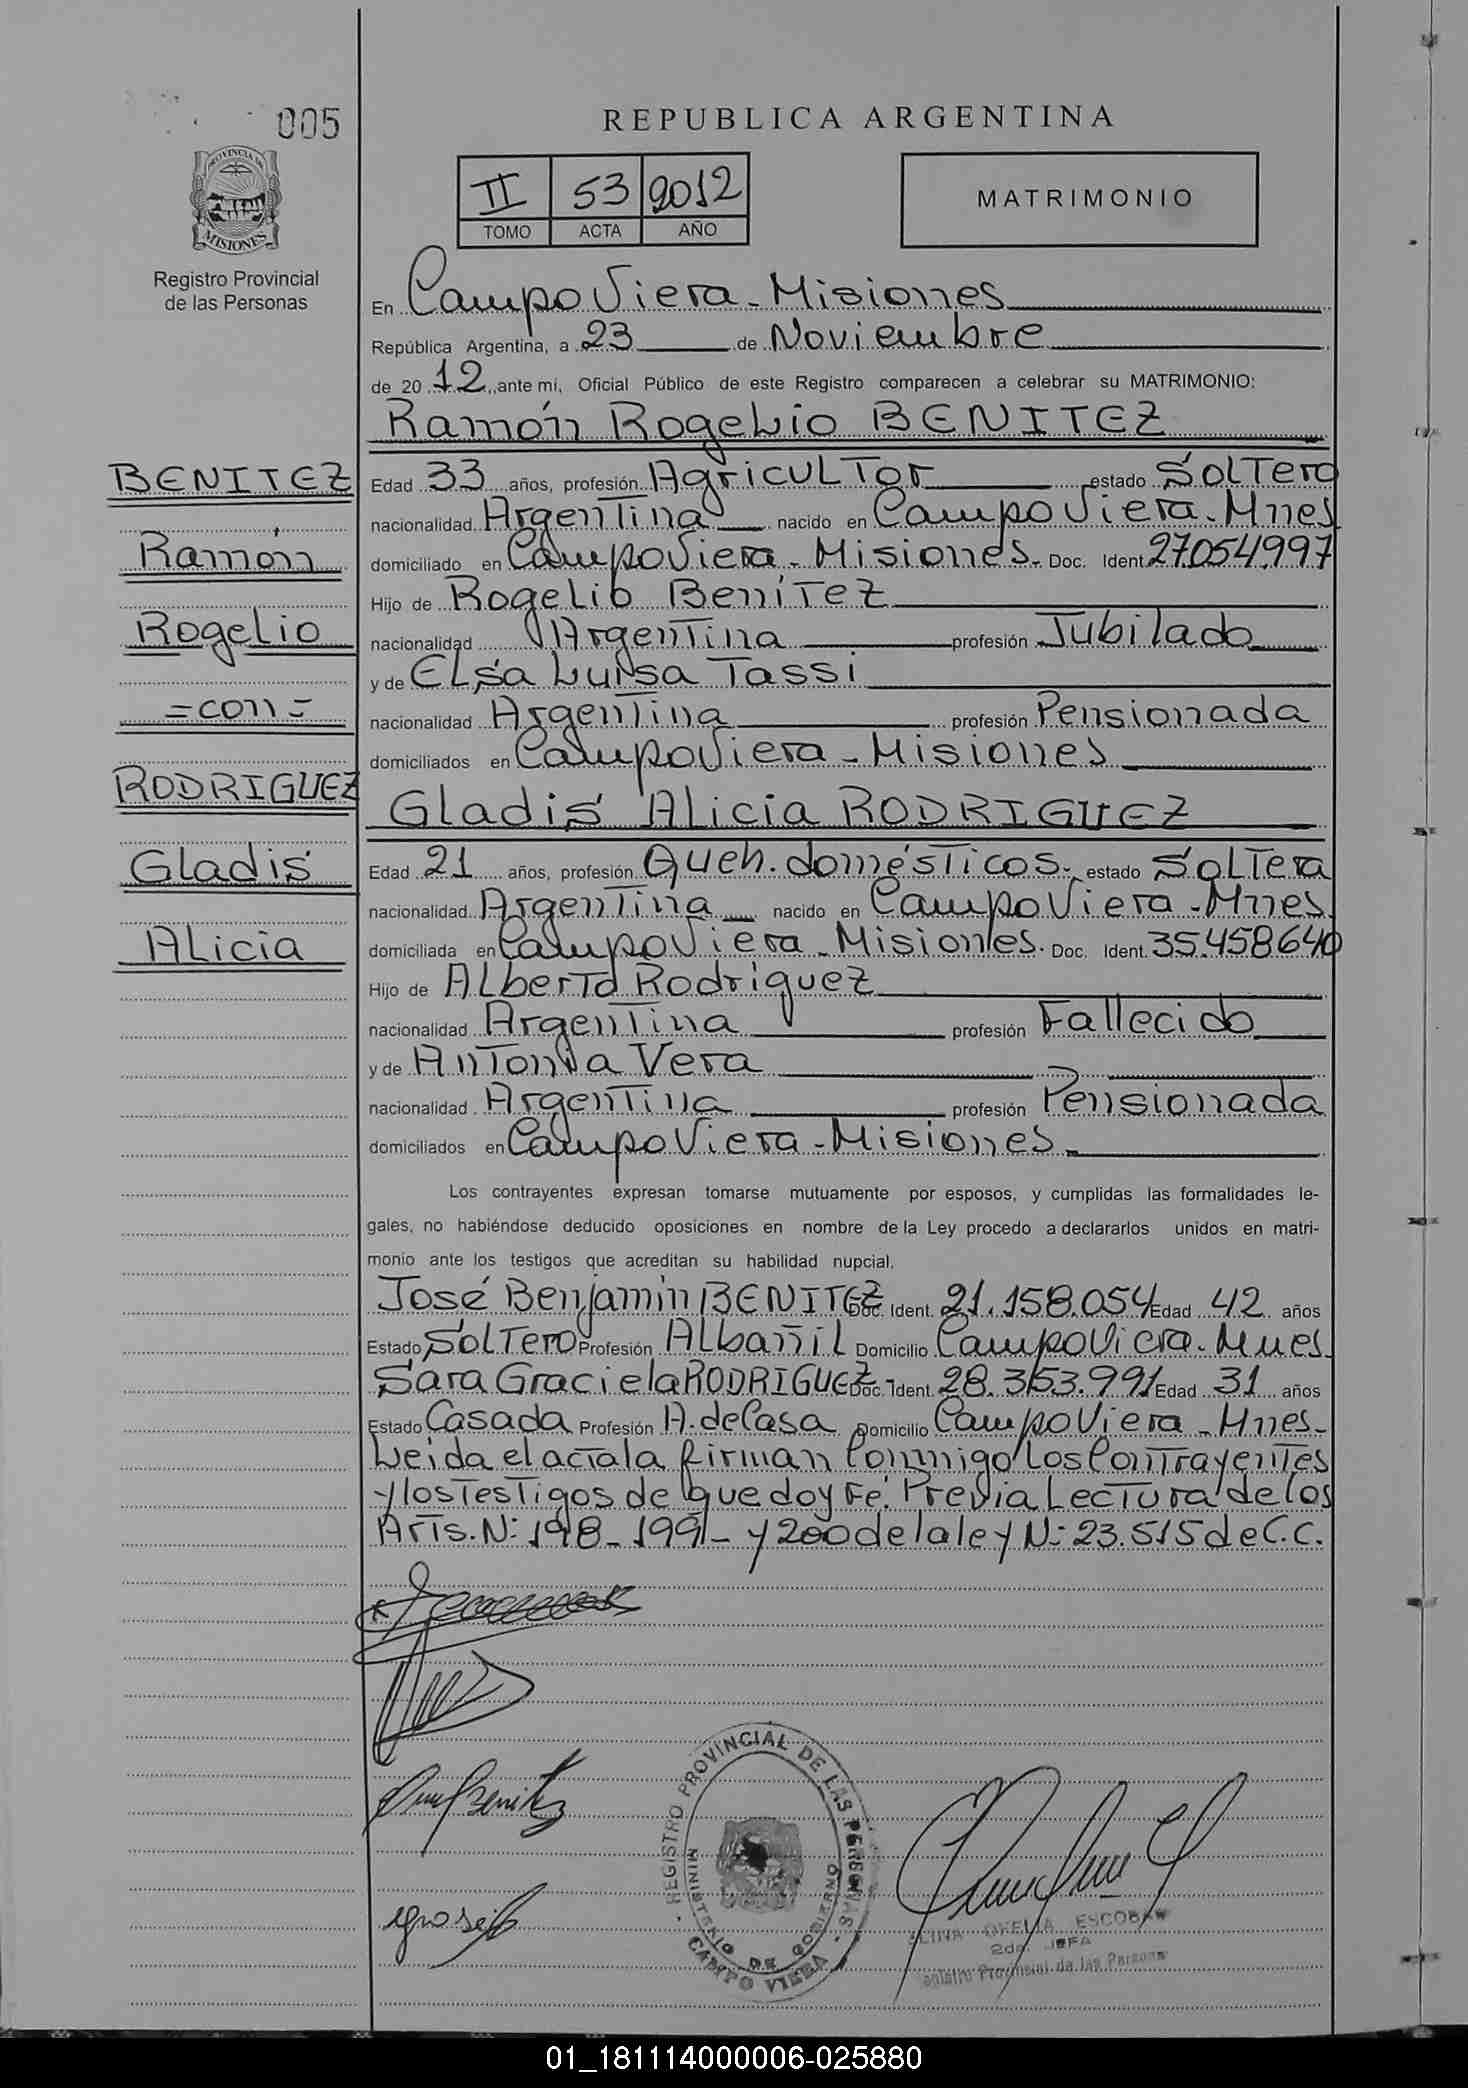 005
REPUBLICA ARGENTINA
PROVINCIA DE
MISIONES
Registro Provincial
de las Personas
II 53 2012
TOMO ACTA AÑO
MATRIMONIO
En Campo Viera - Misiones
República Argentina, a 23 de Noviembre
de 20 12, ante mí, Oficial Público de este Registro comparecen a celebrar su MATRIMONIO:
Ramón Rogelio BENITEZ
BENITEZ
Ramón
Rogelio
=con=
RODRIGUEZ
Gladis
Alicia
Edad 33 años, profesión Agricultor estado Soltero
nacionalidad Argentina nacido en Campo Viera - Mnes
domiciliado en Campo Viera - Misiones. Doc. Ident. 27.054.997
Hijo de Rogelio Benítez
nacionalidad Argentina profesión Jubilado
y de Elsa Luisa Tassi
nacionalidad Argentina profesión Pensionada
domiciliados en Campo Viera - Misiones
Gladis Alicia RODRIGUEZ
Edad 21 años, profesión Queh. domésticos. estado Soltera
nacionalidad Argentina nacido en Campo Viera - Mnes.
domiciliada en Campo Viera - Misiones. Doc. Ident. 35.458640
Hijo de Alberto Rodriguez
nacionalidad Argentina profesión Fallecido
y de Antonia Vera
nacionalidad Argentina profesión Pensionada
domiciliados en Campo Viera - Misiones.
Los contrayentes expresan tomarse mutuamente por esposos, y cumplidas las formalidades le-
gales, no habiéndose deducido oposiciones en nombre de la Ley procedo a declararlos unidos en matri-
monio ante los testigos que acreditan su habilidad nupcial.
José Benjamín BENITEZ Doc. Ident. 21.158.054 Edad 42 años
Estado Soltero Profesión Albañil Domicilio Campo Viera - Mnes.
Sara Graciela RODRIGUEZ Doc. Ident. 28.353.991 Edad 31 años
Estado Casada Profesión A. de Casa Domicilio Campo Viera - Mnes-
Leida el acta la firman Conmigo Los Contrayentes
y los Testigos de que doy Fe. Previa Lectura de los
Arts. N: 198- 199- y 200 de la ley N: 23.515 de C.C.
Benitez
REGISTRO PROVINCIAL DE LAS PERSONAS
MINISTERIO DE GOBIERNO
CAMPO VIERA
OFELIA ESCOBAR
2da. JEFA
Registro Provincial de las Personas
01_181114000006-025880